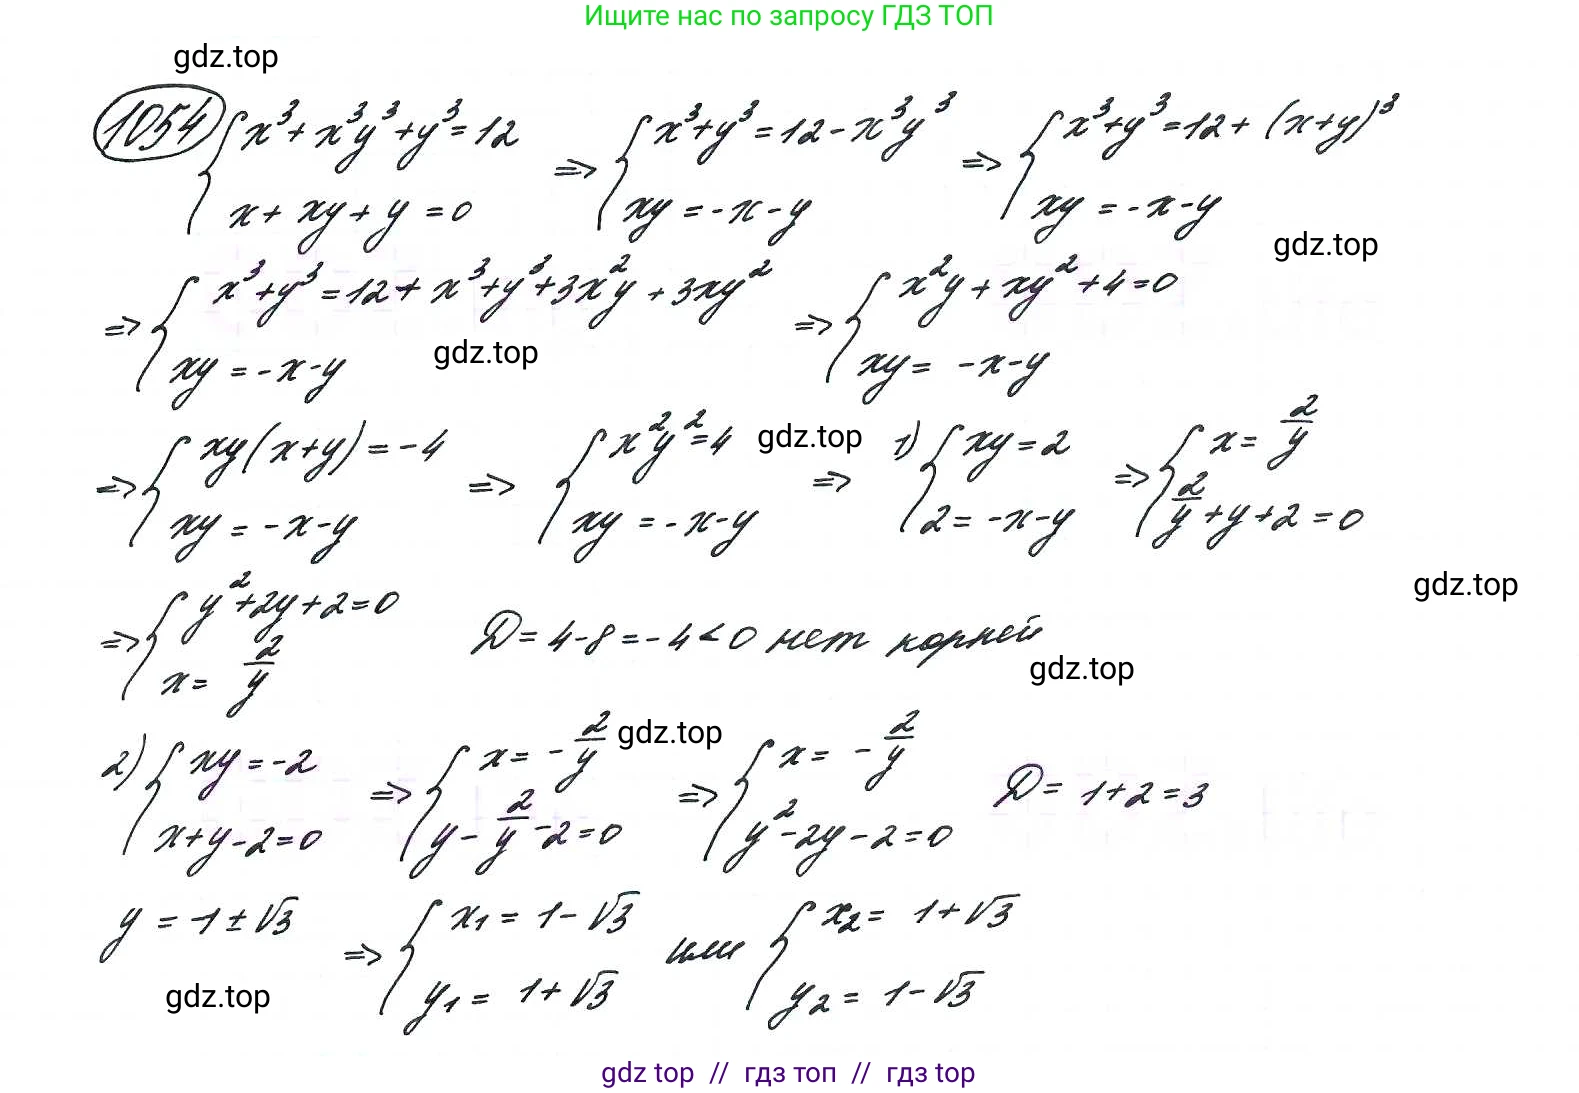 Ищите нас по запросу ГДЗ ТОП
gdz.top
1054 { x³ + x³y³ + y³ = 12 ; x + xy + y = 0 => { x³ + y³ = 12 - x³y³ ; xy = -x - y => { x³ + y³ = 12 + (x+y)³ ; xy = -x - y
gdz.top
=> { x³ + y³ = 12 + x³ + y³ + 3x²y + 3xy² ; xy = -x - y => { x²y + xy² + 4 = 0 ; xy = -x - y
gdz.top
=> { xy(x+y) = -4 ; xy = -x - y => { x²y² = 4 ; xy = -x - y => 1) { xy = 2 ; 2 = -x - y => { x = 2/y ; 2/y + y + 2 = 0
gdz.top
gdz.top
=> { y² + 2y + 2 = 0 ; x = 2/y D = 4 - 8 = -4 < 0 нет корней
gdz.top
gdz.top
2) { xy = -2 ; x + y - 2 = 0 => { x = - 2/y ; y - 2/y - 2 = 0 => { x = - 2/y ; y² - 2y - 2 = 0 D = 1 + 2 = 3
y = -1 ± √3 => { x₁ = 1 - √3 ; y₁ = 1 + √3 или { x₂ = 1 + √3 ; y₂ = 1 - √3
gdz.top
gdz top // гдз топ // gdz top